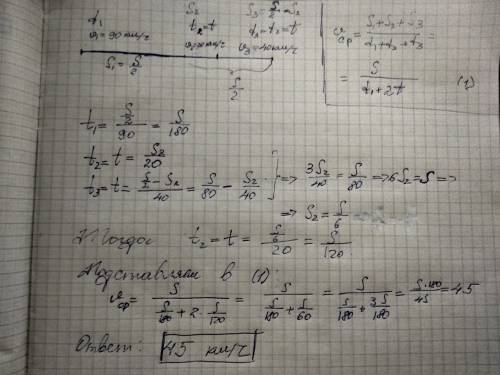 t₁ S₂ S₃ = S/2 - S₂
v₁ = 90 км/ч t₂ = t t₃ = t₂ = t
v₃ = 40 км/ч
S₁ = S/2
S/2
v_ср = (S₁ + S₂ + S₃)/(t₁ + t₂ + t₃) =
= S/(t₁ + 2t) (1)
t₁ = (S/2)/90 = S/180
t₂ = t = S₂/20
t₃ = t = (S/2 - S₂)/40 = S/80 - S₂/40 ] => 3S₂/40 = S/80 => 6S₂ = S =>
=> S₂ = S/6
Тогда t₂ = t = (S/6)/20 = S/120
Подставляем в (1)
v_ср = S/(S/180 + 2 · S/120) = S/(S/180 + S/60) = S/(S/180 + 3S/180) = S·180/4S = 45
Ответ: 45 км/ч